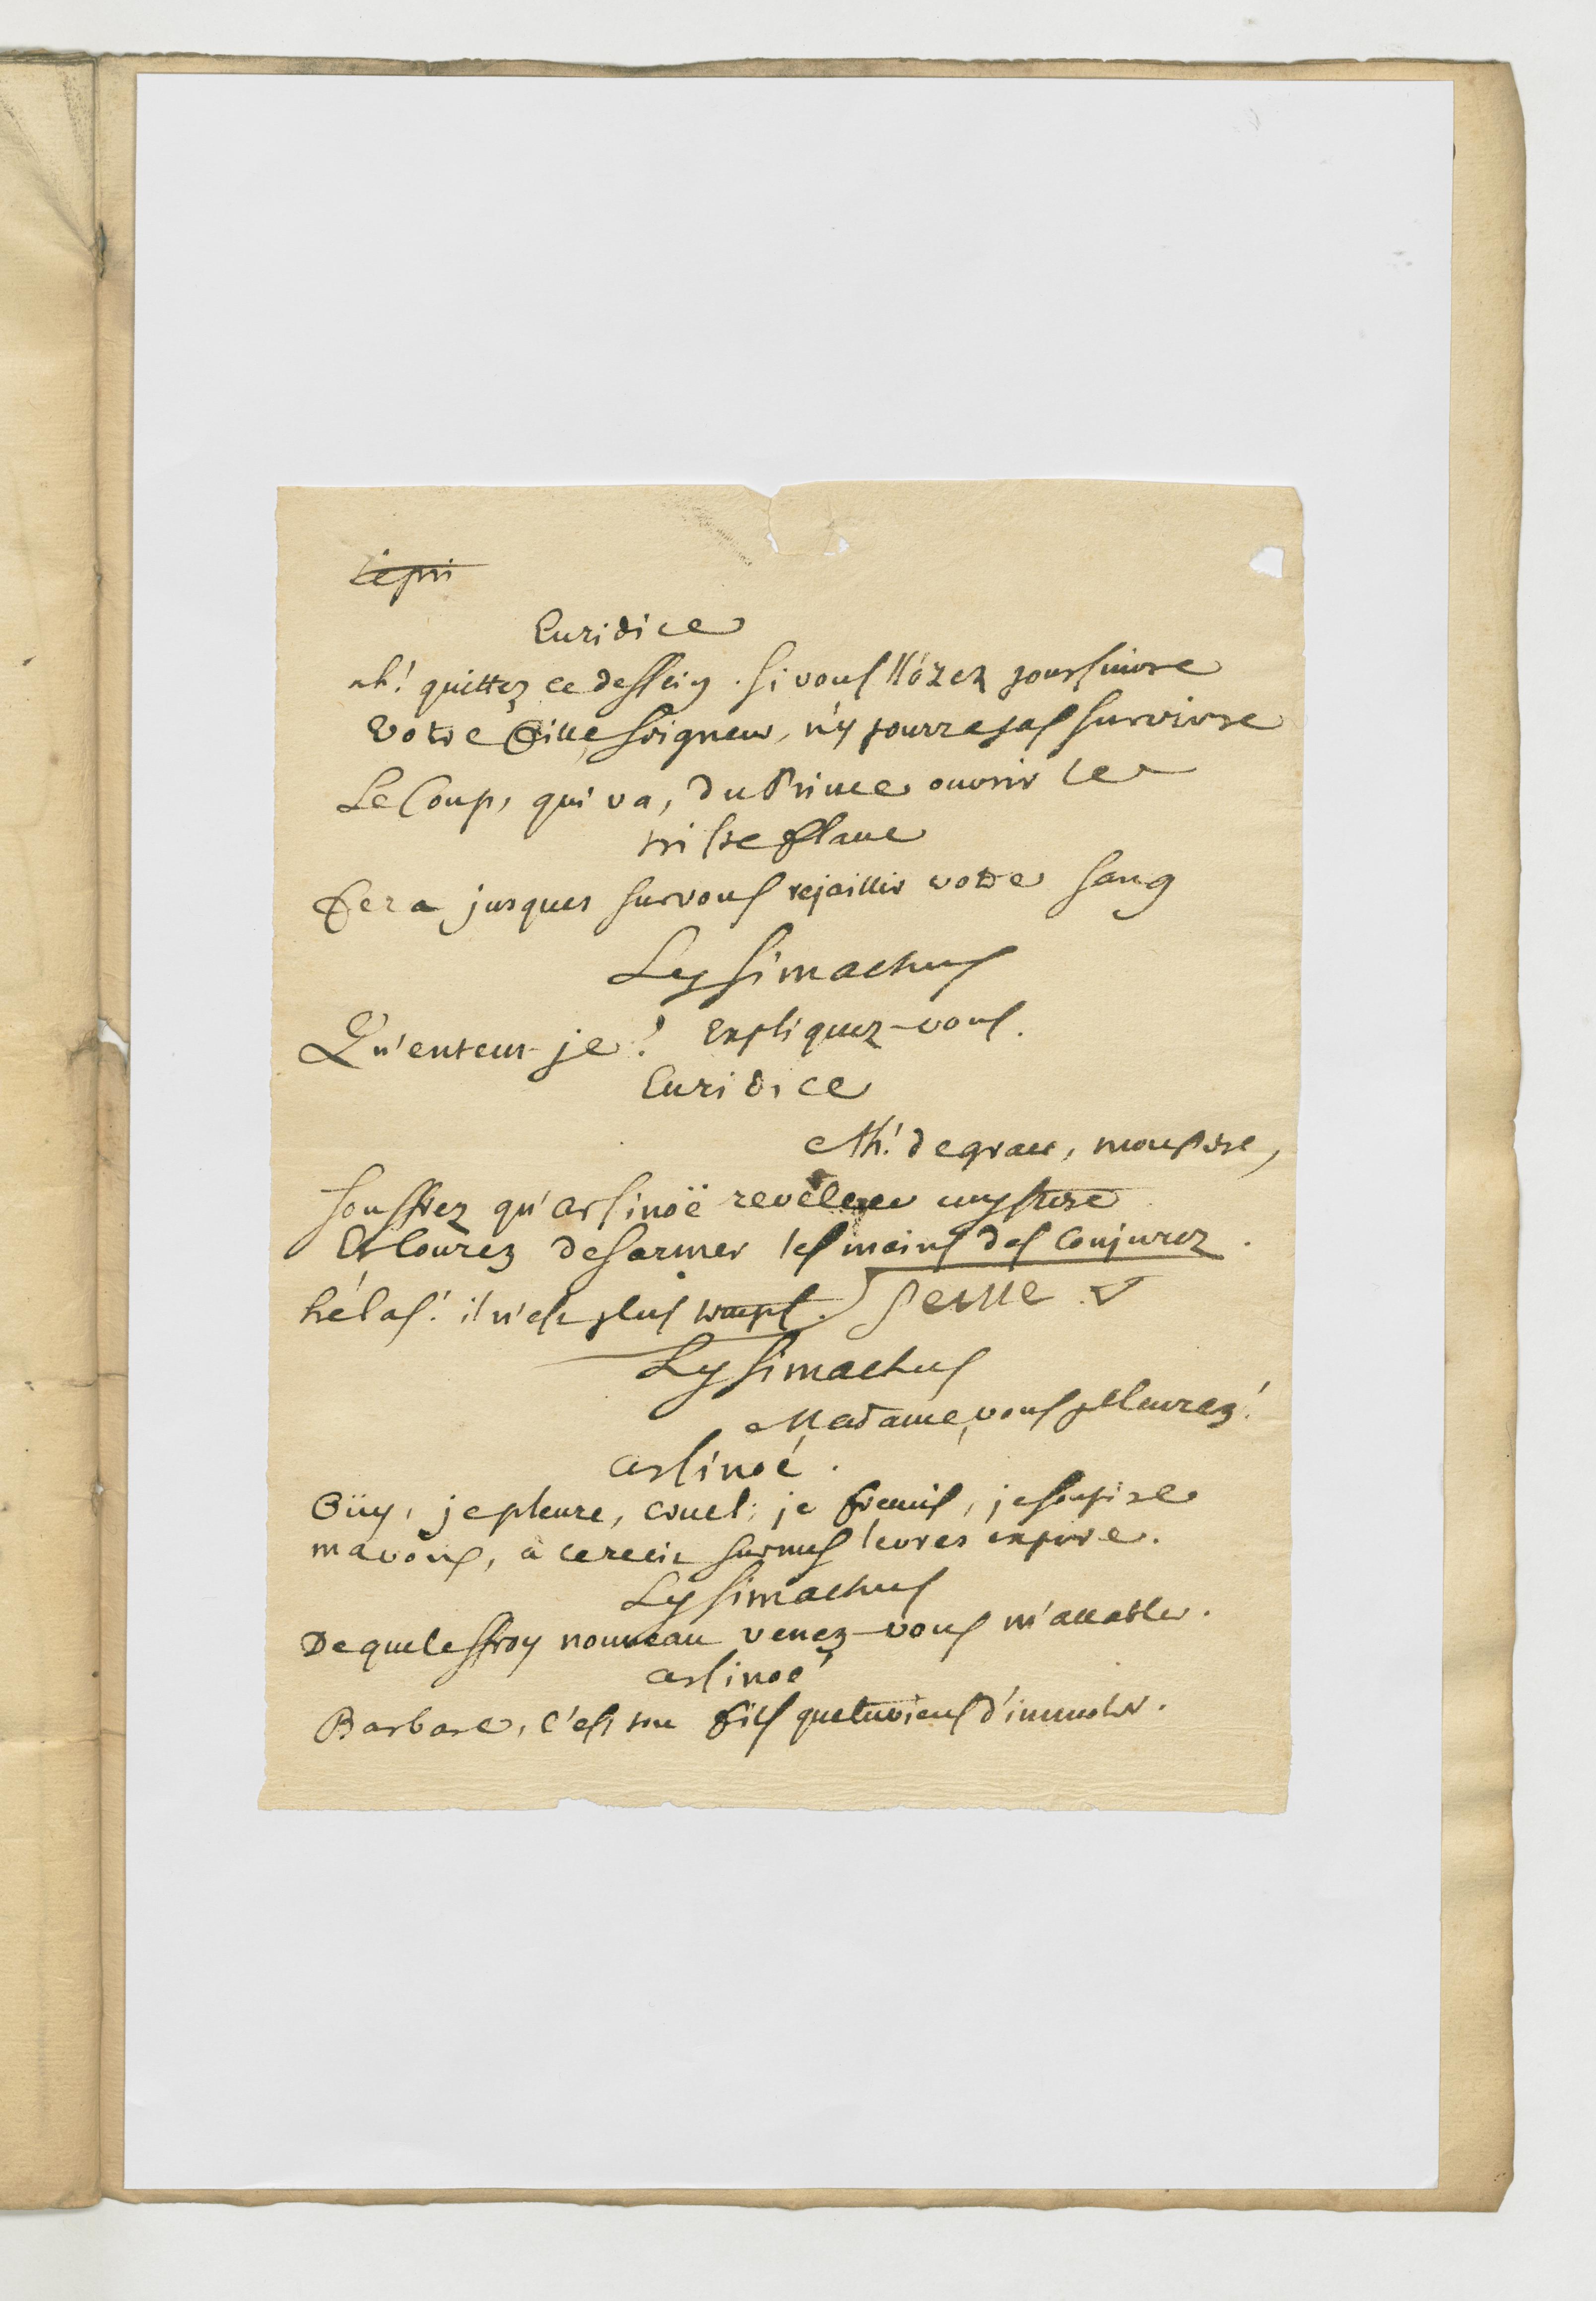 Euridice
ah! quittez ce dessein. si vous l'ôzez poursuivre
Votre fille, seigneur, n'y pourra pas survivre
Le Coup, qui va, du Prince ouvrir le
triste flanc
Fera jusques sur vous rejaillir votre sang
Lysimachus
Qu'entens-je? Expliquez-vous.
Euridice
Ah! de grace, mon pere,
souffrez qu'arsinoë revele ce mystere
Et Courez desarmer les mains des Conjurez.
hélas! il n'est plus temps.
Lysimachus
Madame, vous pleurez!
arsinoé.
Oüy, je pleure, cruel; je fremis, je soupire
ma voix, à ce recit sur mes levres expire.
Lysimachus
De quel effroy nouveau venez-vous m'accabler.
arsinoé
Barbare, c'est ton fils que tu viens d'immoler.